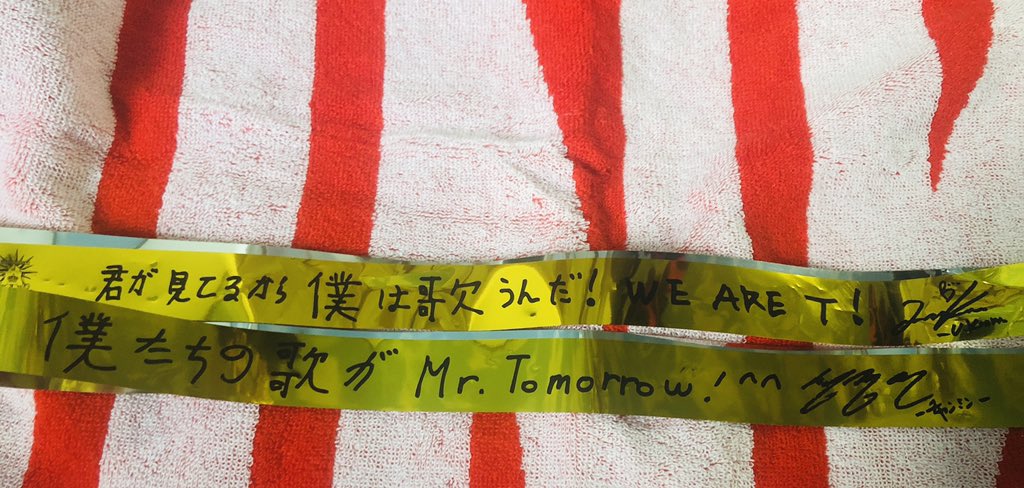 君が見てるから僕は歌うんだ! WE ARE T!
僕たちの歌が Mr. Tomorrow! ^^